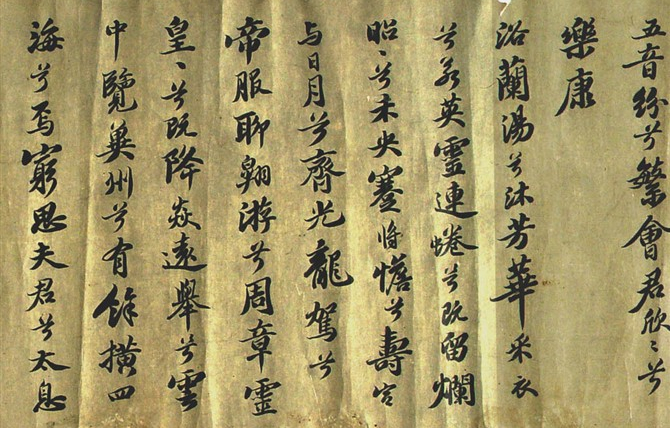 五音紛兮繁會君欣〻兮
樂康
浴蘭湯兮沐芳華采衣
兮若英靈連蜷兮既留爛
昭〻兮未央蹇将憺兮壽宮
与日月兮齊光龍駕兮
帝服聊翱游兮周章靈
皇〻兮既降焱遠舉兮雲
中覽兾州兮有餘橫四
海兮焉窮思夫君兮太息